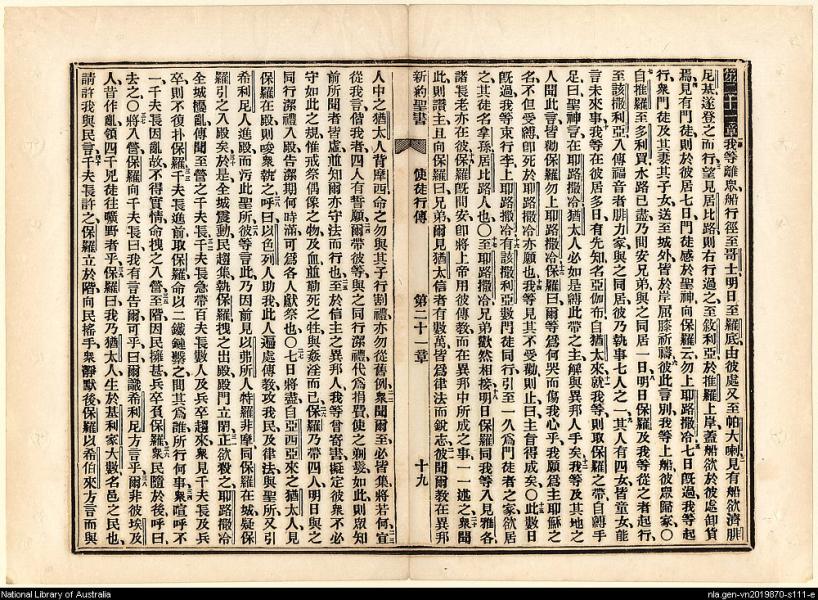 第二十一章我等離眾船行徑至哥士明日至羅底由彼處又至帕大喇見有船欲濟腓
尼基遂登之而行望見居比路則右行過之至敘利亞於推羅上岸蓋船欲於彼處卸貨
焉見有門徒則於彼居七日門徒感於聖神向保羅云勿上耶路撒冷七日既過我等起
行眾門徒及其妻其子女送至城外皆於岸屈膝祈禱彼此言別我等上船彼眾歸家〇
自推羅至多利買水路已盡乃問安兄弟與之同居一日明日保羅及我等從之者起行
至該撒利亞入傳福音者腓力家與之同居彼乃執事七人之一其人有四女皆童女能
言未來事我等在彼居多日有先知名亞伽布自猶太來就我等則取保羅之帶自縛手
足曰聖神言在耶路撒冷猶太人必如是縛此帶之主解與異邦人手矣我等及其地之
人聞此言皆勸保羅勿上耶路撒冷保羅曰爾等為何哭而傷我心乎我願為主耶穌之
名不但受縛即死於耶路撒冷亦願也我等見其不受勸則止曰主旨得成矣〇此數日
既過我等束行李上耶路撒冷有該撒利亞數門徒同行引至一久為門徒者之家欲居
之其徒名拿孫居比路人也〇至耶路撒冷兄弟歡然相接明日保羅同我等入見雅各
諸長老亦在彼保羅既問安即將上帝用彼傳教而在異邦中所成之事一一述之眾聞
此則讚主且向保羅曰兄弟爾見猶太信者有數萬皆為律法而銳志彼聞爾教在異邦
新約聖書
使徒行傳
第二十一章
十九
人中之猶太人背摩西命之勿與其子行割禮亦勿從舊例眾聞爾至必皆集將若何宣
從我言偕我者四人有誓願爾帶彼等與之同行潔禮代為捐費使之剃髮如此則眾知
前所聞者皆虛並知爾亦守法而行也至於信主之異邦人我等曾寄書擬定彼眾不必
守如此之規惟戒祭偶像之物及血並勒死之牲與姦淫而已保羅乃帶四人明日與之
同行潔禮入殿告潔期何時滿可為各人獻祭也〇七日將盡自亞西亞來之猶太人見
保羅在殿則唆眾執之呼曰以色列人助我此人遍處傳教攻我民及律法與聖所又引
希利尼人進殿而污此聖所彼等言此乃因前見以弗所人特羅非摩同保羅在城疑保
羅引之入殿矣於是全城震動民趨集執保羅拽之出殿殿門立閉正欲殺之耶路撒冷
全城擾亂傳聞至營之千夫長千夫長急帶百夫長數人及兵卒趨來眾見千夫長及兵
卒則不復扑保羅千夫長進前取保羅命以二鐵鏈繫之問其為誰所行何事眾喧呼不
一千夫長因亂故不得實情命拽之入營至階因民擁甚兵卒負保羅眾民隨於後呼曰
去之〇將入營保羅向千夫長曰我有言告爾可乎曰爾識希利尼方言乎爾非彼埃及
人昔作亂領四千兇徒往曠野者乎保羅曰我乃猶太人生於基利家大數名邑之民也
請許我與民言千夫長許之保羅立於階向民搖手眾靜默後保羅以希伯來方言而與
National Library of Australia
nla.gen-vn2019870-s111-e